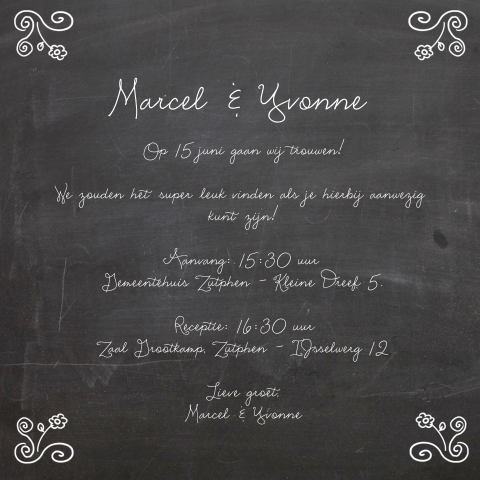 Marcel & Yvonne
Op 15 juni gaan wij trouwen!
We zouden het super leuk vinden als je hierbij aanwezig
kunt zijn!
Aanvang: 15:30 uur
Gemeentehuis Zutphen - Kleine Dreef 5.
Receptie: 16:30 uur
Zaal Grootkamp, Zutphen - IJsselwerg 12
Lieve groet,
Marcel & Yvonne